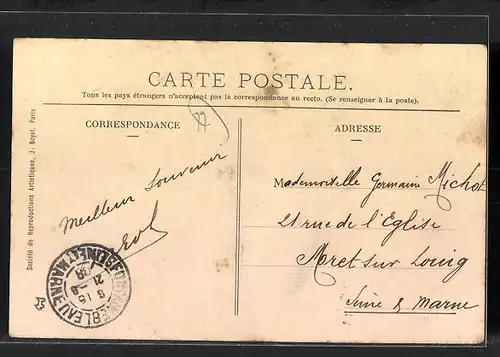 CARTE POSTALE.
Tous les pays étrangers n'acceptent pas la correspondance au recto. (Se renseigner à la poste).
CORRESPONDANCE
ADRESSE
77
Meilleur Souvenir
Mademoiselle Germaine Michot
21 rue de l'Eglise
Moret sur Loing
Seine & Marne
FONTAINEBLEAU
SEINE ET MARNE
Société de Reproductions Artistiques, J. Royer, Paris